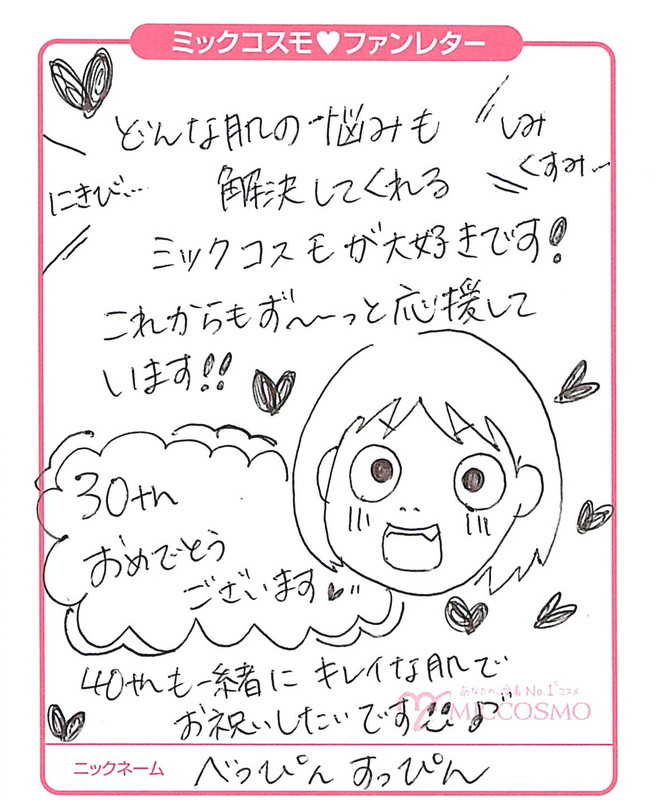 ミックコスモ♥ファンレター
どんな肌の悩みも
しみ
くすみ…
にきび…
解決してくれる
ミックコスモが大好きです!
これからもず〜〜っと応援して
います!!
30th
おめでとう
ございます
40thも一緒に キレイな肌で
お祝いしたいです
あなたの、愛着No.1コスメ
MICCOSMO
ニックネーム べっぴん すっぴん